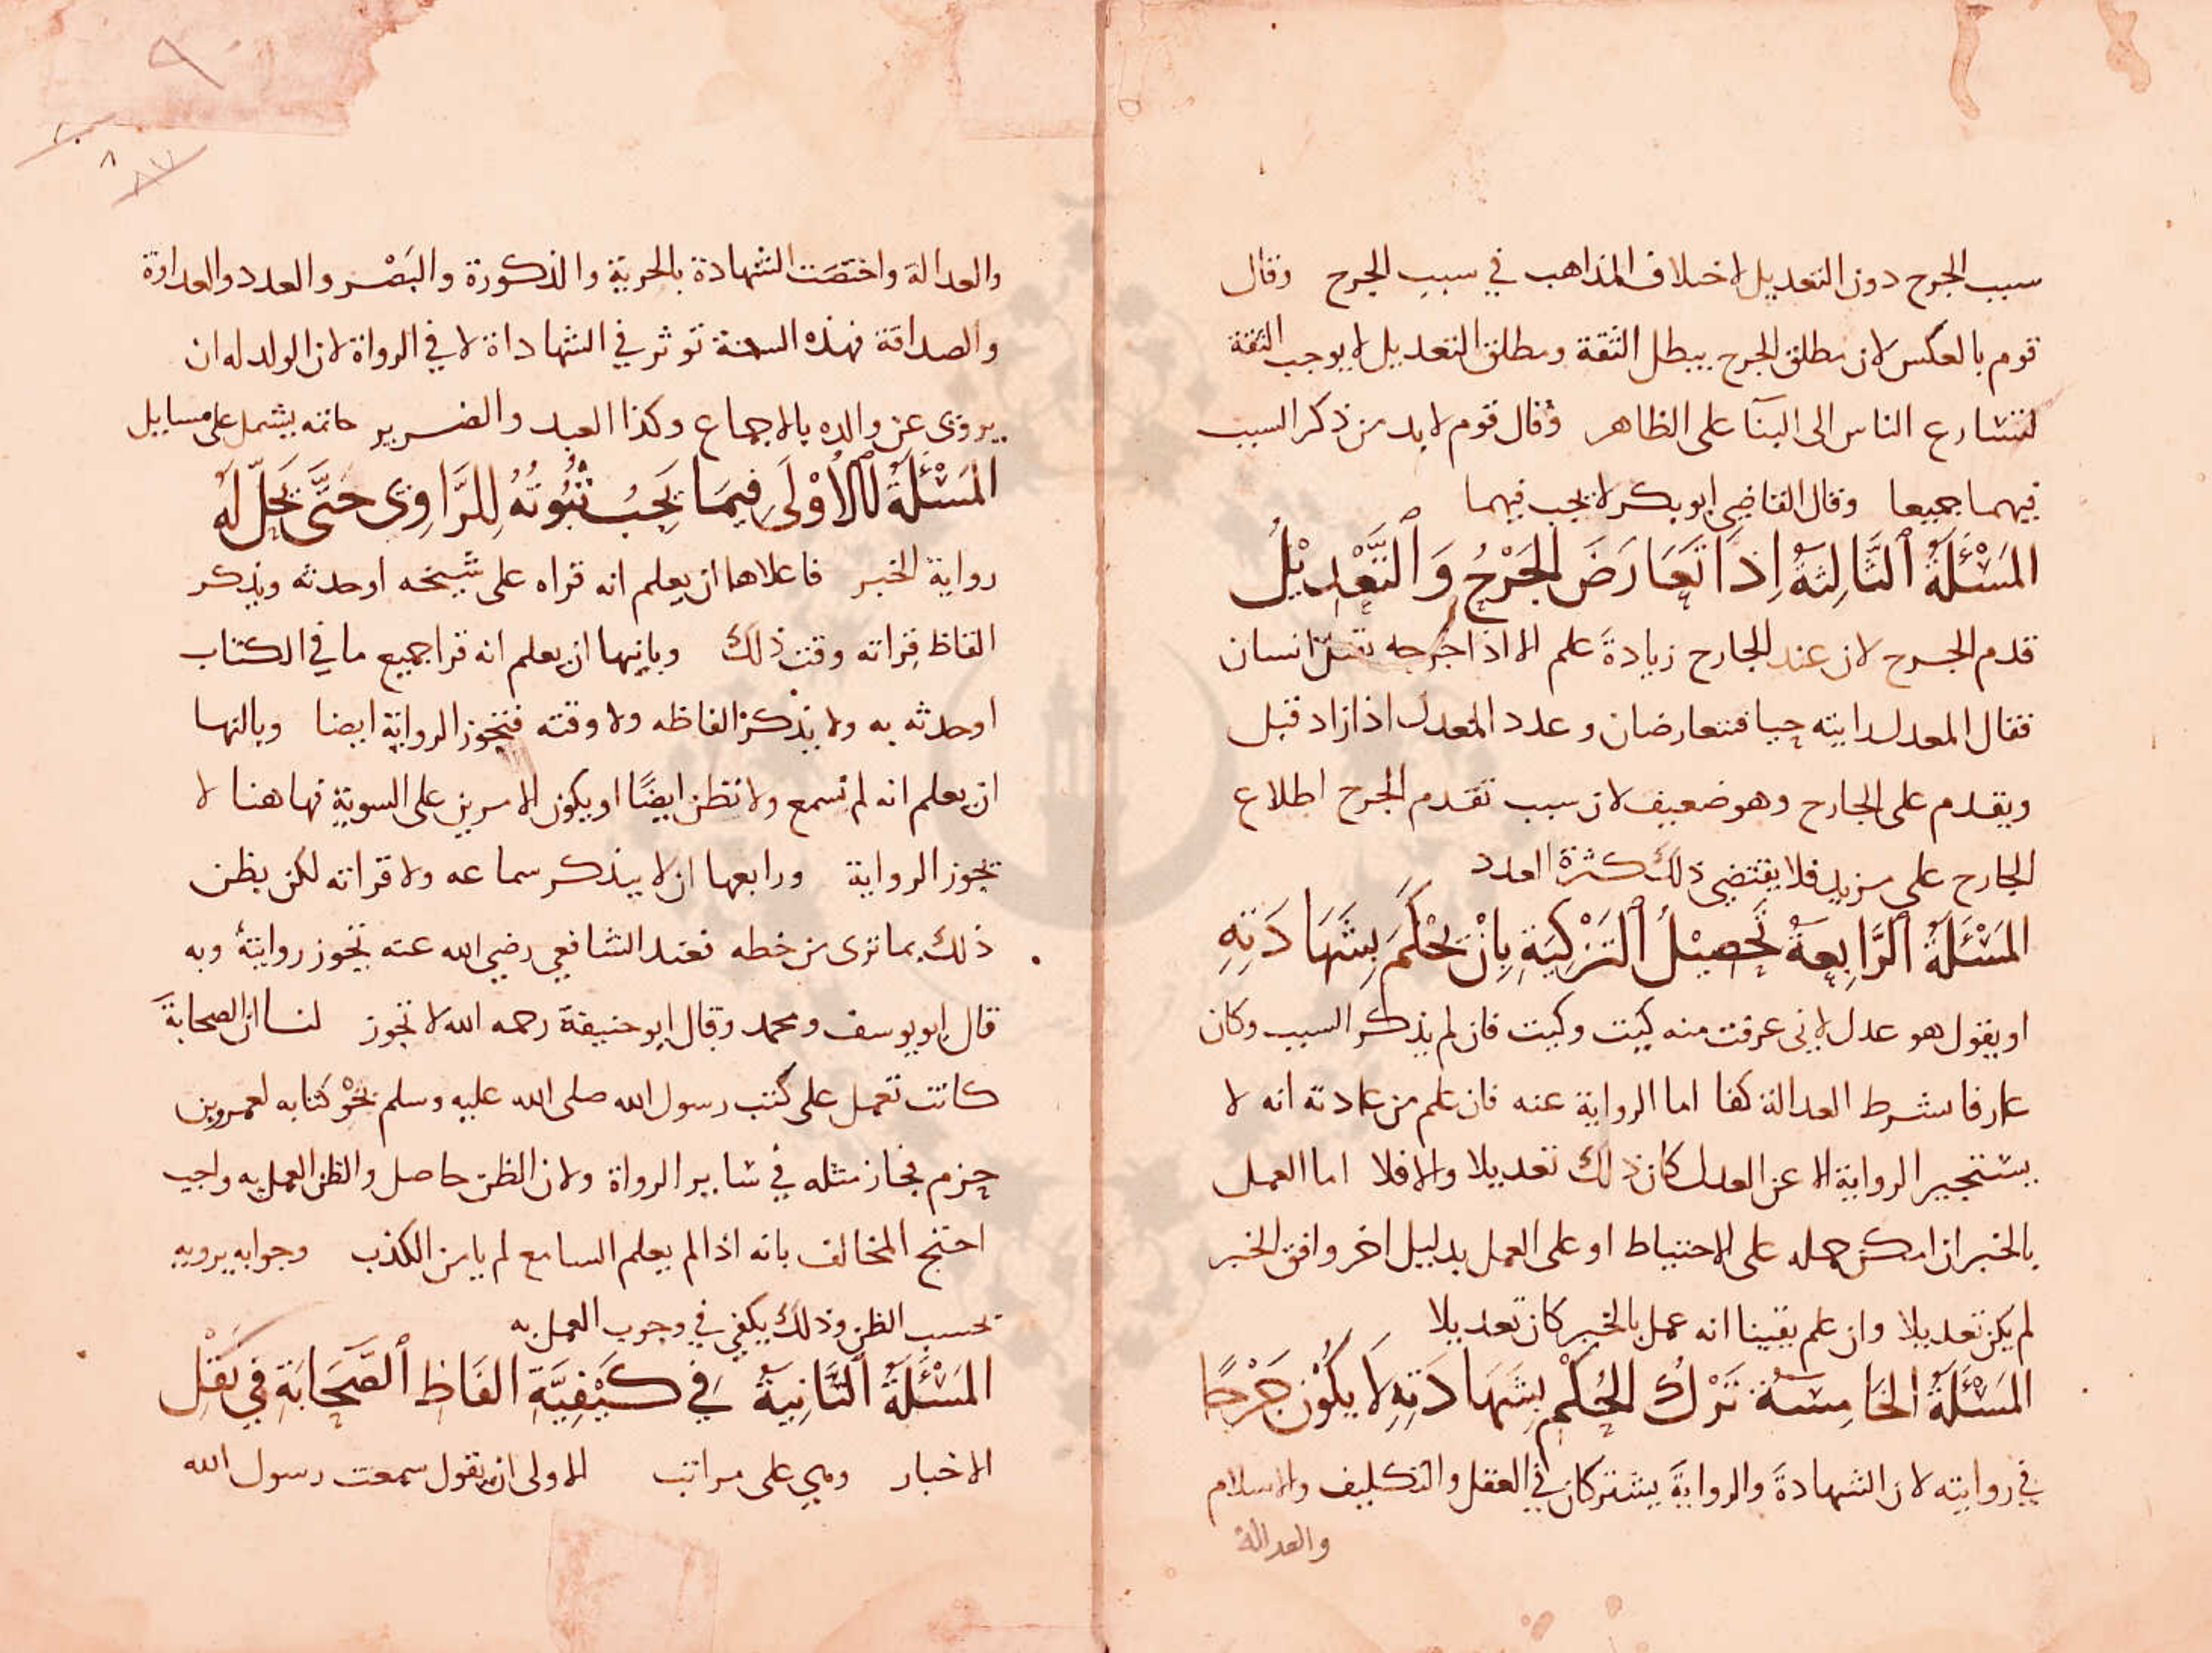 سبب الجرح دون التعديل لاختلاف المذاهب في سبب الجرح وقال
قوم بالعكس لان مطلق الجرح يبطل الثقة ومطلق التعديل لا يوجب الثقة
لتشارع الناس الى البنآ على الظاهر وقال قوم لا بد من ذكر السبب
فيهما جميعا وقال القاضي ابو بكر لا يجب فيهما
المَسْئَلَةُ ٱلثَّالِثَةُ اِذَا تَعَارَضَ الجَرْحُ وَٱلتَّعْدِيْلُ
قدم الجرح لان عند الجارح زيادة علم الا اذا جرحه بقتل انسان
فقال المعدل رايته حيا فتعارضان وعدد المعدل اذا زاد قبل
ويقدم على الجارح وهو ضعيف لان سبب تقدم الجرح اطلاع
الجارح على مزيد فلا يقتضي ذلك كثرة العدد
المَسْئَلَةُ ٱلرَّابِعَةُ تَحصِيْلُ ٱلتَزْكِيَةِ بِاَنْ يَحْكُمَ بِشَهَادَتِهِ
او يقول هو عدل لاني عرفت منه كيت وكيت فان لم يذكر السبب وكان
عارفا بشرط العدالة كفا اما الرواية عنه فان علم من عادته انه لا
يستجيز الرواية الا عن العدل كان ذلك تعديلا والا فلا اما العمل
بالخبر ان امكن حمله على الاحتياط او على العمل بدليل اخر وافق الخبر
لم يكن تعديلا وان علم يقينا انه عمل بالخبر كان تعديلا
المَسْئَلَةُ الخَامِسَةُ تَرْكُ الحُكْمِ بِشَهَادَتِهِ لَا يَكُوْنُ جَرْحًا
في روايته لان الشهادة والرواية يشتركان في العقل والتكليف والاسلام
والعدالة
٩
٨
والعدالة واختصت الشهادة بالحرية والذكورة والبَصْر والعدد والعداوة
والصداقة فهذه الستة توثر في الشهاداة لا في الرواة لان الولد له ان
يروي عن والده بالاجماع وكذا العبد والضرير خاتمه يشمل على مسايل
المَسْئَلَةُ ٱلْاُوْلَى فِيمَا يَجِبُ ثُبُوْتُهُ لِلرَّاوِي حَتَّى تَحِلَّ لَهُ
رواية الخبر فاعلاها ان يعلم انه قراه على شيخه او حدثه ويذكر
الفاظ قراته وقت ذلك وبانيها ان يعلم انه قرا جميع ما في الكتاب
او حدثه به ولا يذكر الفاظه ولا وقته فتجوز الرواية ايضا وبالثها
ان يعلم انه لم تسمع ولا تظن ايضًا او يكون الامرين على السوية فهاهنا لا
تجوز الرواية ورابعها ان لا يذكر سماعه ولا قراته لكن يظن
ذلك بما ترى من خطه فعند الشافعي رضي الله عنه تجوز روايتهُ وبه
قال ابو يوسف ومحمد وقال ابو حنيفة رحمه الله لا تجوز لنا ان الصحابة
كانت تعمل على كتب رسول الله صلى الله عليه وسلم نحْوَ كتابه لعمرو بن
حزم فجاز مثله في ساير الرواة ولان الظن حاصل والظن العمل به واجب
احتج المخالف بانه اذا لم يعلم السامع لم يامن الكذب وجوابه يرويه
بحسب الظن وذلك يكفي في وجوب العمل به
المَسْئَلَةُ ٱلثَّانِيَةُ فِي كَيْفِيَّةِ الفَاظِ ٱلصَّحَابَةِ فِي نَقْلِ
الاخبار وهي على مراتب الاولى ان يقول سمعت رسول الله